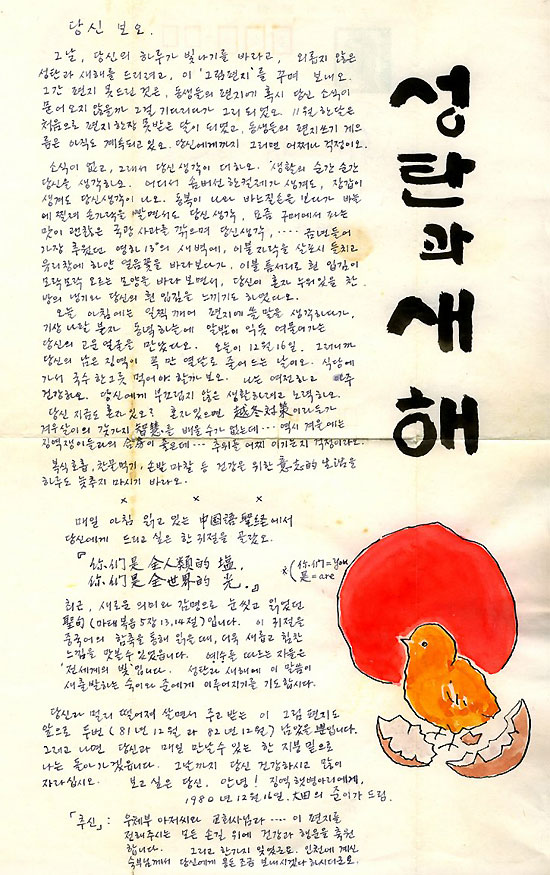 당신 보오.
그날, 당신의 하루가 빛나기를 바라고, 외롭지 않은
성탄과 새해를 드리려고, 이 '그림편지'를 꾸며 보내오.
그간 편지 못드린 것은, 동생들의 편지에 혹시 당신 소식이
묻어 오지 않을까 그걸 기다리다가 그리 되었오. 11월 한달은
처음으로 편지 한장 못받은 달이 되었고, 동생들의 편지쓰기 게으
름은 아직도 계속되고 있오. 당신에게까지 그러면 어쩌나 걱정이오.
소식이 없고, 그래서 당신 생각이 더하오. 생활의 순간 순간
당신을 생각하오. 어디서 솜버선 한 켤레가 생겨도, 장갑이
생겨도 당신 생각이 나오. 동복이 나와 바느질손을 보다가 바늘
에 찔려 손가락을 빨면서도 당신생각, 요즘 구매에서 파는
맛이 괜찮은 국광 사과를 깎으며 당신생각, ‥‥ 금년들어
가장 추웠던 영하 13°의 새벽에, 이불자락을 살포시 들치고
유리창에 하얀 얼음꽃을 바라보다가, 이불 틈서리로 흰 입김이
모락모락 오르는 모양을 바라 보면서, 당신이 혼자 누워있을 찬
방의 냉기와 당신의 흰 입김을 느끼기도 하였다오.
오늘 아침에는 일찍 깨어 편지에 쓸 말을 생각하다가,
기상 나팔 불자 동녘하늘에 알밤이 익듯 여물어가는
당신의 고운 얼굴을 만났다오. 오늘이 12월 16일, 그러니까
당신의 남은 징역이 꼭 만 열달로 줄어드는 날이오. 식당에
가서 국수 한그릇 먹어야 할까보오. 나는 여전하고 아주
건강하오. 당신에게 부끄럽지 않은 생활하려고 노력하오.
당신 지금도 혼자 있오? 혼자 있으면 越冬対策이라든가
겨우살이의 갖가지 智慧을 배울 수가 없는데‥‥ 역시 겨울에는
징역쟁이들과의 合房이 좋으데‥‥ 추위를 어찌 이기는지 걱정이라오.
복식호흡, 찬물먹기, 손발 마찰 등 건강을 위한 意志的 생활을
하루도 늦추지 마시기 바라오.
× × ×
매일 아침 읽고 있는 中国語 聖書에서
당신에게 드리고 싶은 한 귀절을 골랐오.
『你们是 全人類的 塩,
你们是 全世界的 光.』
*(你们=you
是=are
최근, 새로운 의미와 감명으로 눈 씻고 읽었던
聖句 (마태복음 5장 13,14절) 입니다. 이 귀절을
중국어의 함축을 통해 읽을 때, 더욱 새롭고 힘찬
느낌을 맛볼 수 있었읍니다. 예수를 따르는 자들은
'전세계의 빛'입니다. 성탄과 새해에 이 말씀이
새출발하는 숙이와 준에게 이루어지기를 기도합시다.
당신과 멀리 떨어져 살면서 주고 받는 이 그림 편지도
앞으로 두번 (81년 12월과 82년 12월) 남았을 뿐입니다.
그리고 나면 당신과 매일 만날 수 있는 한 지붕 밑으로
나는 돌아가겠읍니다. 그날까지 당신 건강하시고 많이
자라십시오. 보고싶은 당신, 안녕! 징역 햇병아리에게,
1980년 12월 16일, 大田의 준이가 드림.
「추신」: 우체부 아저씨와 교회사님과 ‥‥ 이 편지를
전해주시는 모든 손길 위에 건강과 행운을 축원
합니다. 그리고 한가지 잊었군요. 인천에 계신
숙부님께서 당신에게 용돈 조금 보내시겠다 하시더군요.
성탄과 새해